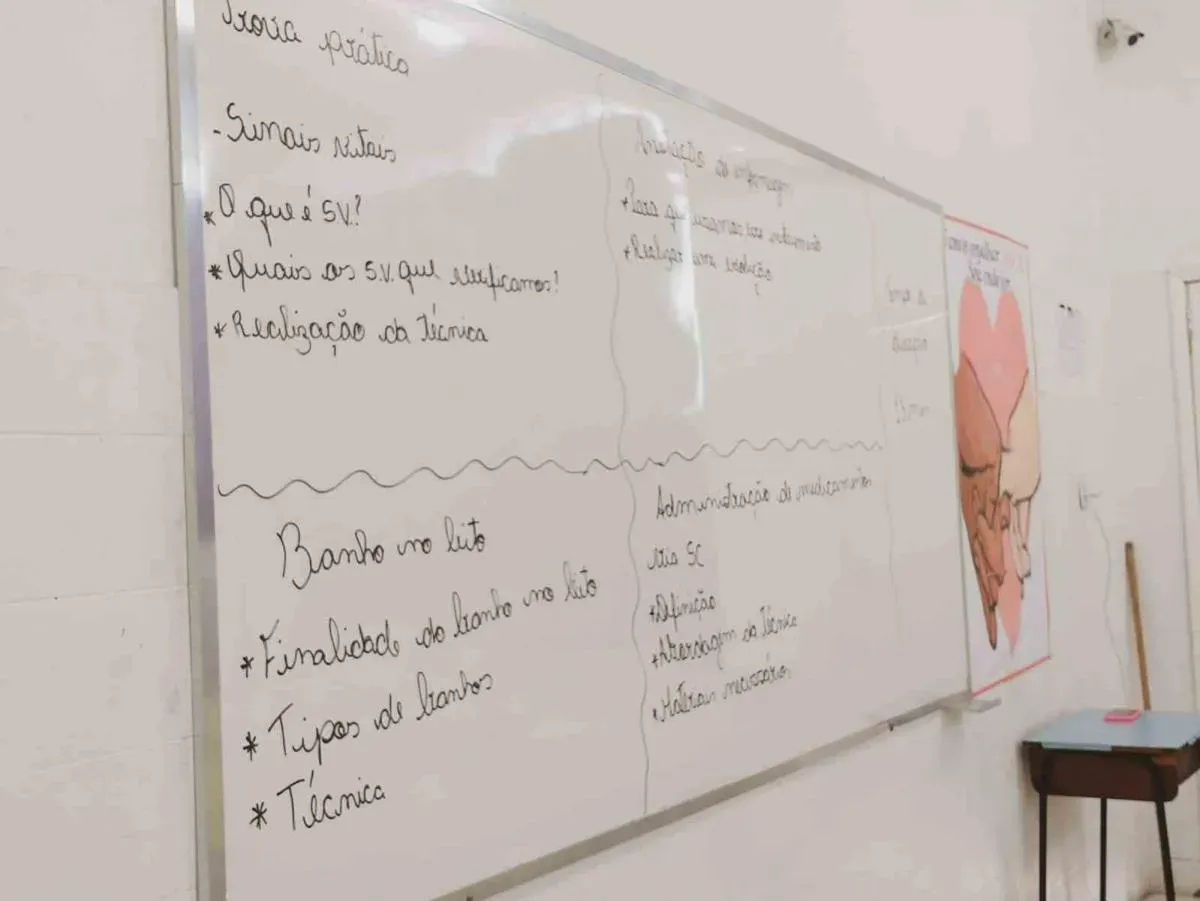 Prova prática
- Sinais vitais
* O que é S.V.?
* Quais os S.V. que verificamos?
* Realização da Técnica
Anotação de enfermagem
* Para que usamos
* Realizar uma evolução
Banho no leito
* Finalidade do banho no leito
* Tipos de banhos
* Técnica
Administração de medicamentos
via SC
* Definição
* Abordagem da Técnica
* Materiais necessários